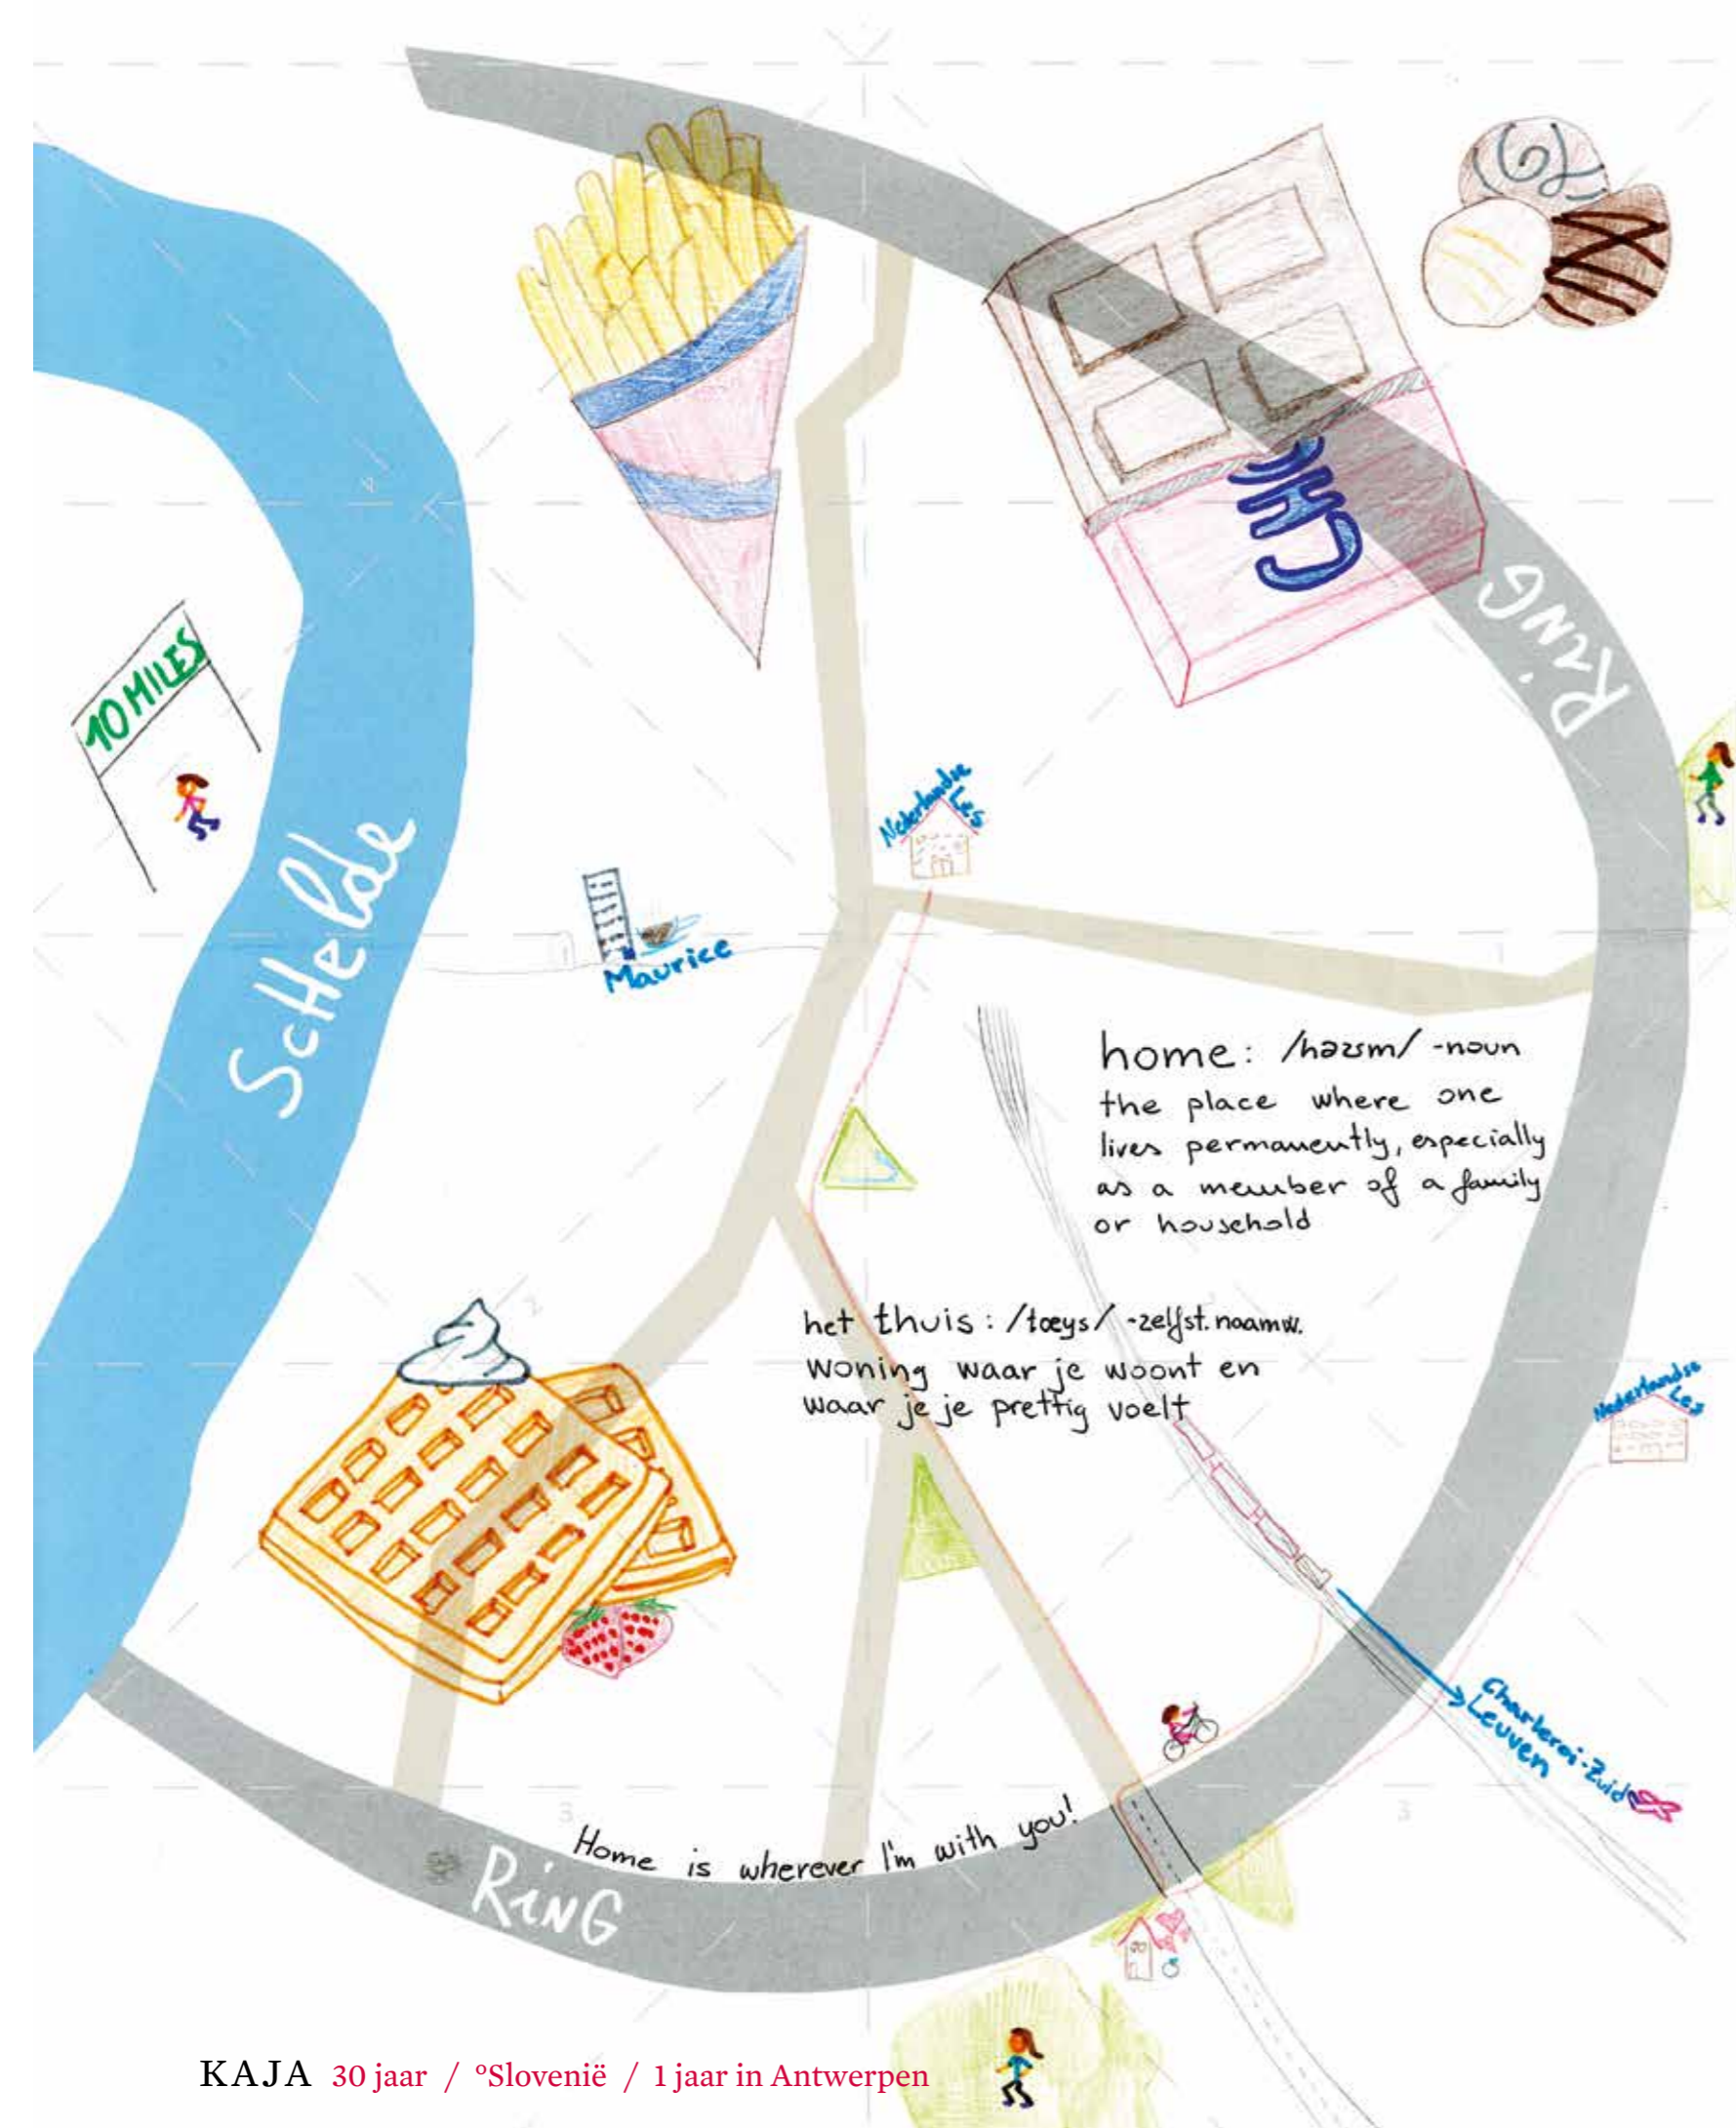 CHO
RiNG
10 MILES
Nederlandse
Les
Schelde
Maurice
home: /həʊm/ -noun
the place where one
lives permanently, especially
as a member of a family
or household
het thuis: /tœys/ -zelfst. naamw.
woning waar je woont en
waar je je prettig voelt
Nederlandse
Les
Charleroi-Zuid
Leuven
Home is wherever I'm with you!
RiNG
3
3
KAJA 30 jaar / °Slovenië / 1 jaar in Antwerpen